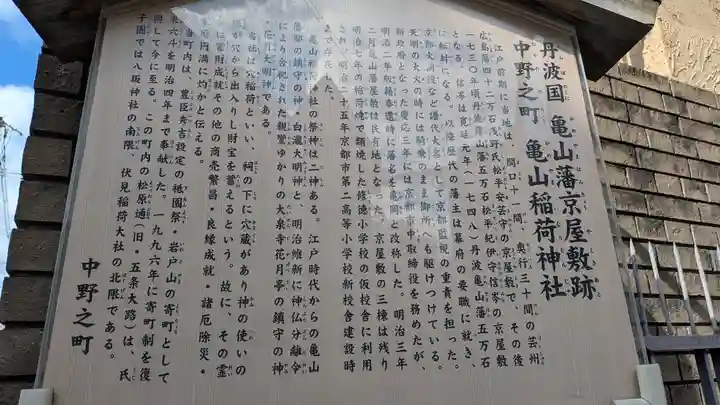 丹波国 亀山藩京屋敷跡
中野之町 亀山稲荷神社
江戸前期に当地は、間口十一間、奥行三十間の芸州
広島藩四十二万石浅野氏松平安芸守の京屋敷で、その後
一七三〇年頃丹波亀山藩五万石松平紀伊守信岑の京屋敷
となる。信岑は寛延元年(一七四八)丹波亀山藩五万石
に転封になる。以降歴代の藩主は幕府の要職に就き、
京都火消役など譜代大名として京都監視の重責を担った。
天明の大火の時には騎乗のまま御所へも駆けつけている。
新政府となった慶応三年には京都市中取締役を務めたが、
明治二年版籍奉還時に藩名を亀岡と改称した。明治三年
二月亀山藩屋敷は民有地となった。京屋敷の三棟は残り
明治七年の稲荷焼で類焼した修徳小学校の仮校舎に利用
され、明治三十五年京都市第二高等小学校新校舎建設時
まで存在した。
亀山稲荷神社の祭神は二神ある。江戸時代からの亀山
藩邸の鎮守の神・白瀧大明神と、明治維新に神仏分離令
により合祀された親鸞ゆかりの大泉寺花月亭の鎮守の神
・花月大明神である。
当社は穴稲荷といい、祠の下に穴蔵があり神の使いの
が穴から出入りし財宝を蓄えるという。故に、その霊
に富財成就その他の商売繁昌・良縁成就・諸厄除災・
円満に灼かと伝える。
当町内は、豊臣秀吉設定の祇園祭・岩戸山の寄町として
米六斗を明治四年まで奉献した。一九九六年に寄町制を復
興して今に至る。この町内の松原通(旧・五条大路)は、氏
子圏では八坂神社の南限、伏見稲荷大社の北限である。
中野之町